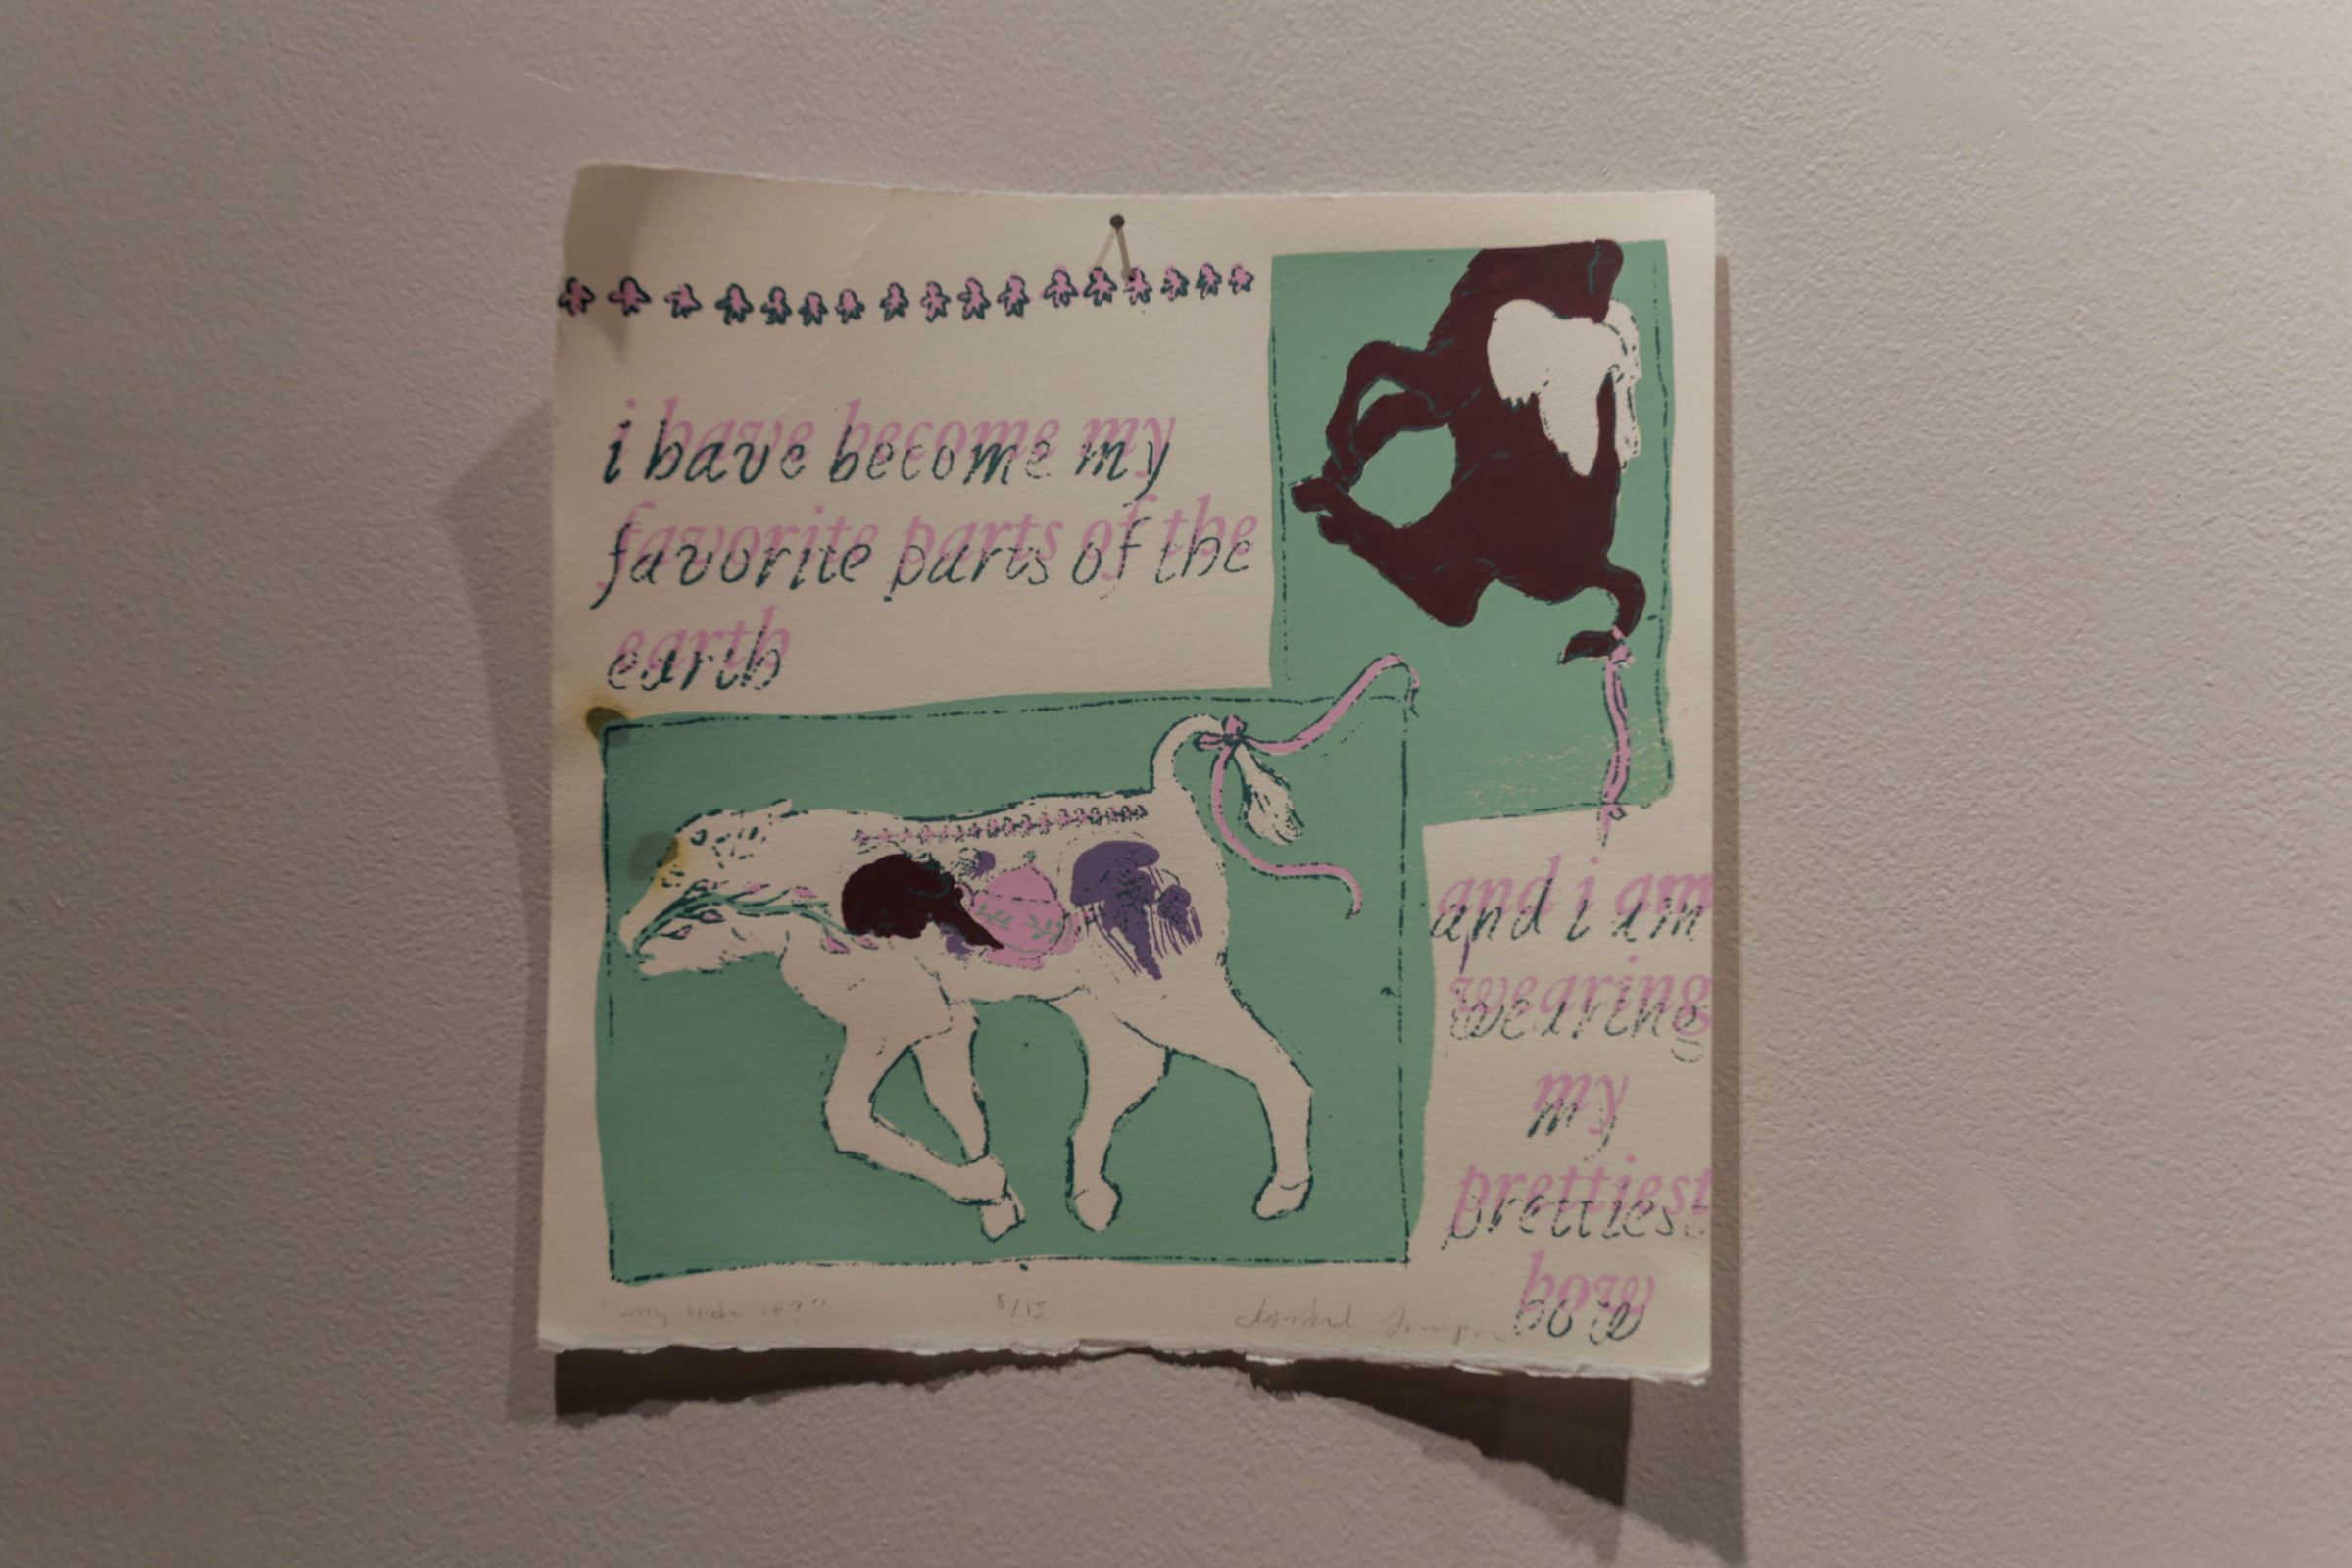 i have become my
favorite parts of the
earth
and i am
wearing
my
prettiest
bow
8/13